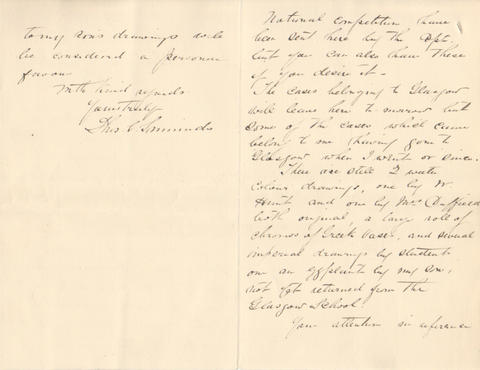 National Competition have
been sent here by the Dpt.
but you can also have these
if you desire it —
The cases belonging to Glasgow
will leave here to morrow but
some of the cases which came
belong to me having gone to
Glasgow when I went or since.
There are still 2 water
colour drawings, one by W.
Hunt and one by Mrs Duffield
both original, a large role of
chromos of Greek Vases, and several
imperial drawings by students
one an by my son,
not yet returned from the
Glasgow School
Your attention in reference
to my son's drawings will
be considered a personal
favour
With kind regards
Yours truly
Thos. C. Simmonds